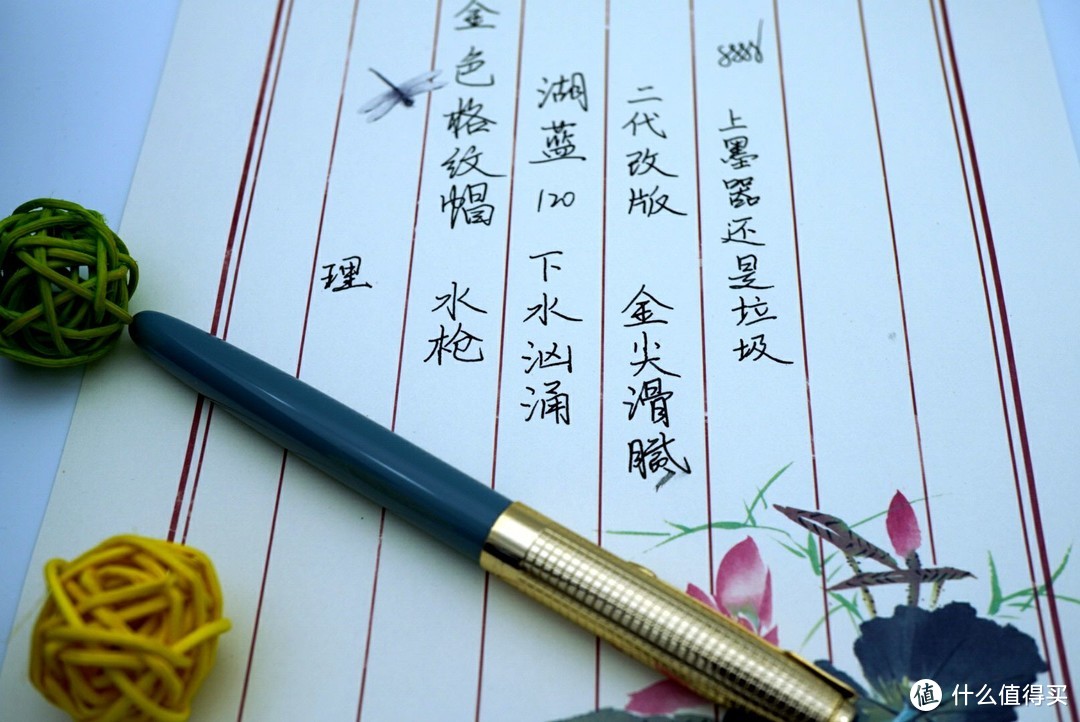 上墨器还是垃圾
二代改版 金尖滑腻
湖蓝120 下水汹涌
金色格纹帽 水枪
理
值 什么值得买